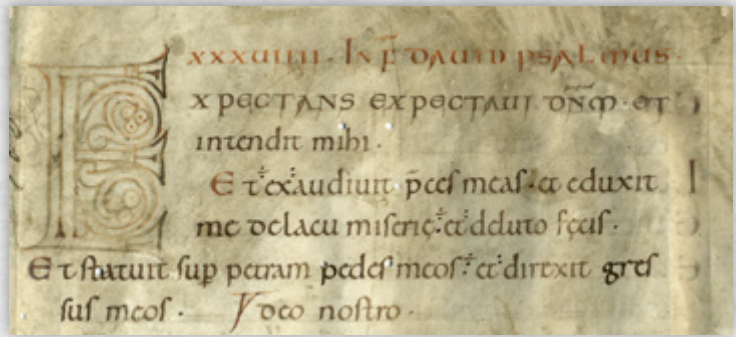 xxxuiiii · IN F̄ DAUID PSALMUS ·
EXPECTANS EXPECTAUI DÑM · ET
intendit mihi ·
Et exaudiuit p̄ces meas · et eduxit
me delacu miserię · et deluto fęcis ·
Et statuit sup petram pedes meos · et direxit gres
sus meos · deo nostro ·